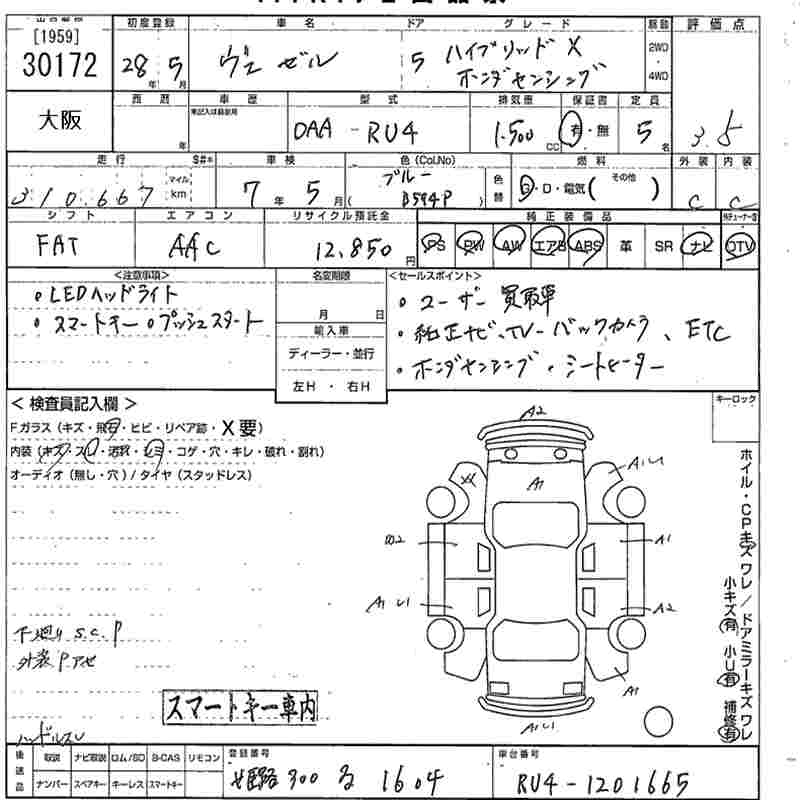 初度登録 車名 ドア グレード 駆動 評価点
[1959]
30172
28年 5月 ヴェゼル 5 ハイブリッド X
ホンダセンシング
2WD
4WD
3.5
大阪
西暦 車歴 型式 排気量 保証書 定員
年 DAA - RU4 1.500 CC 有・無 5名
走行 S#* 車検 色(Col.No) 色替 燃料 その他 外装 内装
310,667 マイル km 7年 5月 ブルー (B594P) G・D・電気( ) C C
シフト エアコン リサイクル預託金 純正装備品
FAT AAC 12,850円 PS PW AW エアB ABS 革 SR ナビ TV
<注意事項>
・LEDヘッドライト
・スマートキー・プッシュスタート
名変期限
月 日
輸入車
ディーラー・並行
左H・右H
<セールスポイント>
・ユーザー買取車
・純正ナビ、TV、バックカメラ、ETC
・ホンダセンシング・シートヒーター
<検査員記入欄>
Fガラス(キズ・飛石・ヒビ・リペア跡・X要)
内装(キズ・スレ・汚れ・シミ・コゲ・穴・キレ・破れ・割れ)
オーディオ(無し・穴)/タイヤ(スタッドレス)
キーロック
A2
A1
XX
A1U1
A1
A2
A1 U1
A1
A1U1
ホイル・CPキズ ワレ/ドアミラーキズ ワレ
小キズ(有) 小U(有) 補修(有)
下廻り S.C.P
外装Pアセ
スマートキー車内
ハンドルスレ
後送品 取説 ナビ取説 ロム/SD B-CAS リモコン
ナンバー スペアキー キーレス スマートキー
登録番号
姫路 300 る 1604
車台番号
RU4-1201665